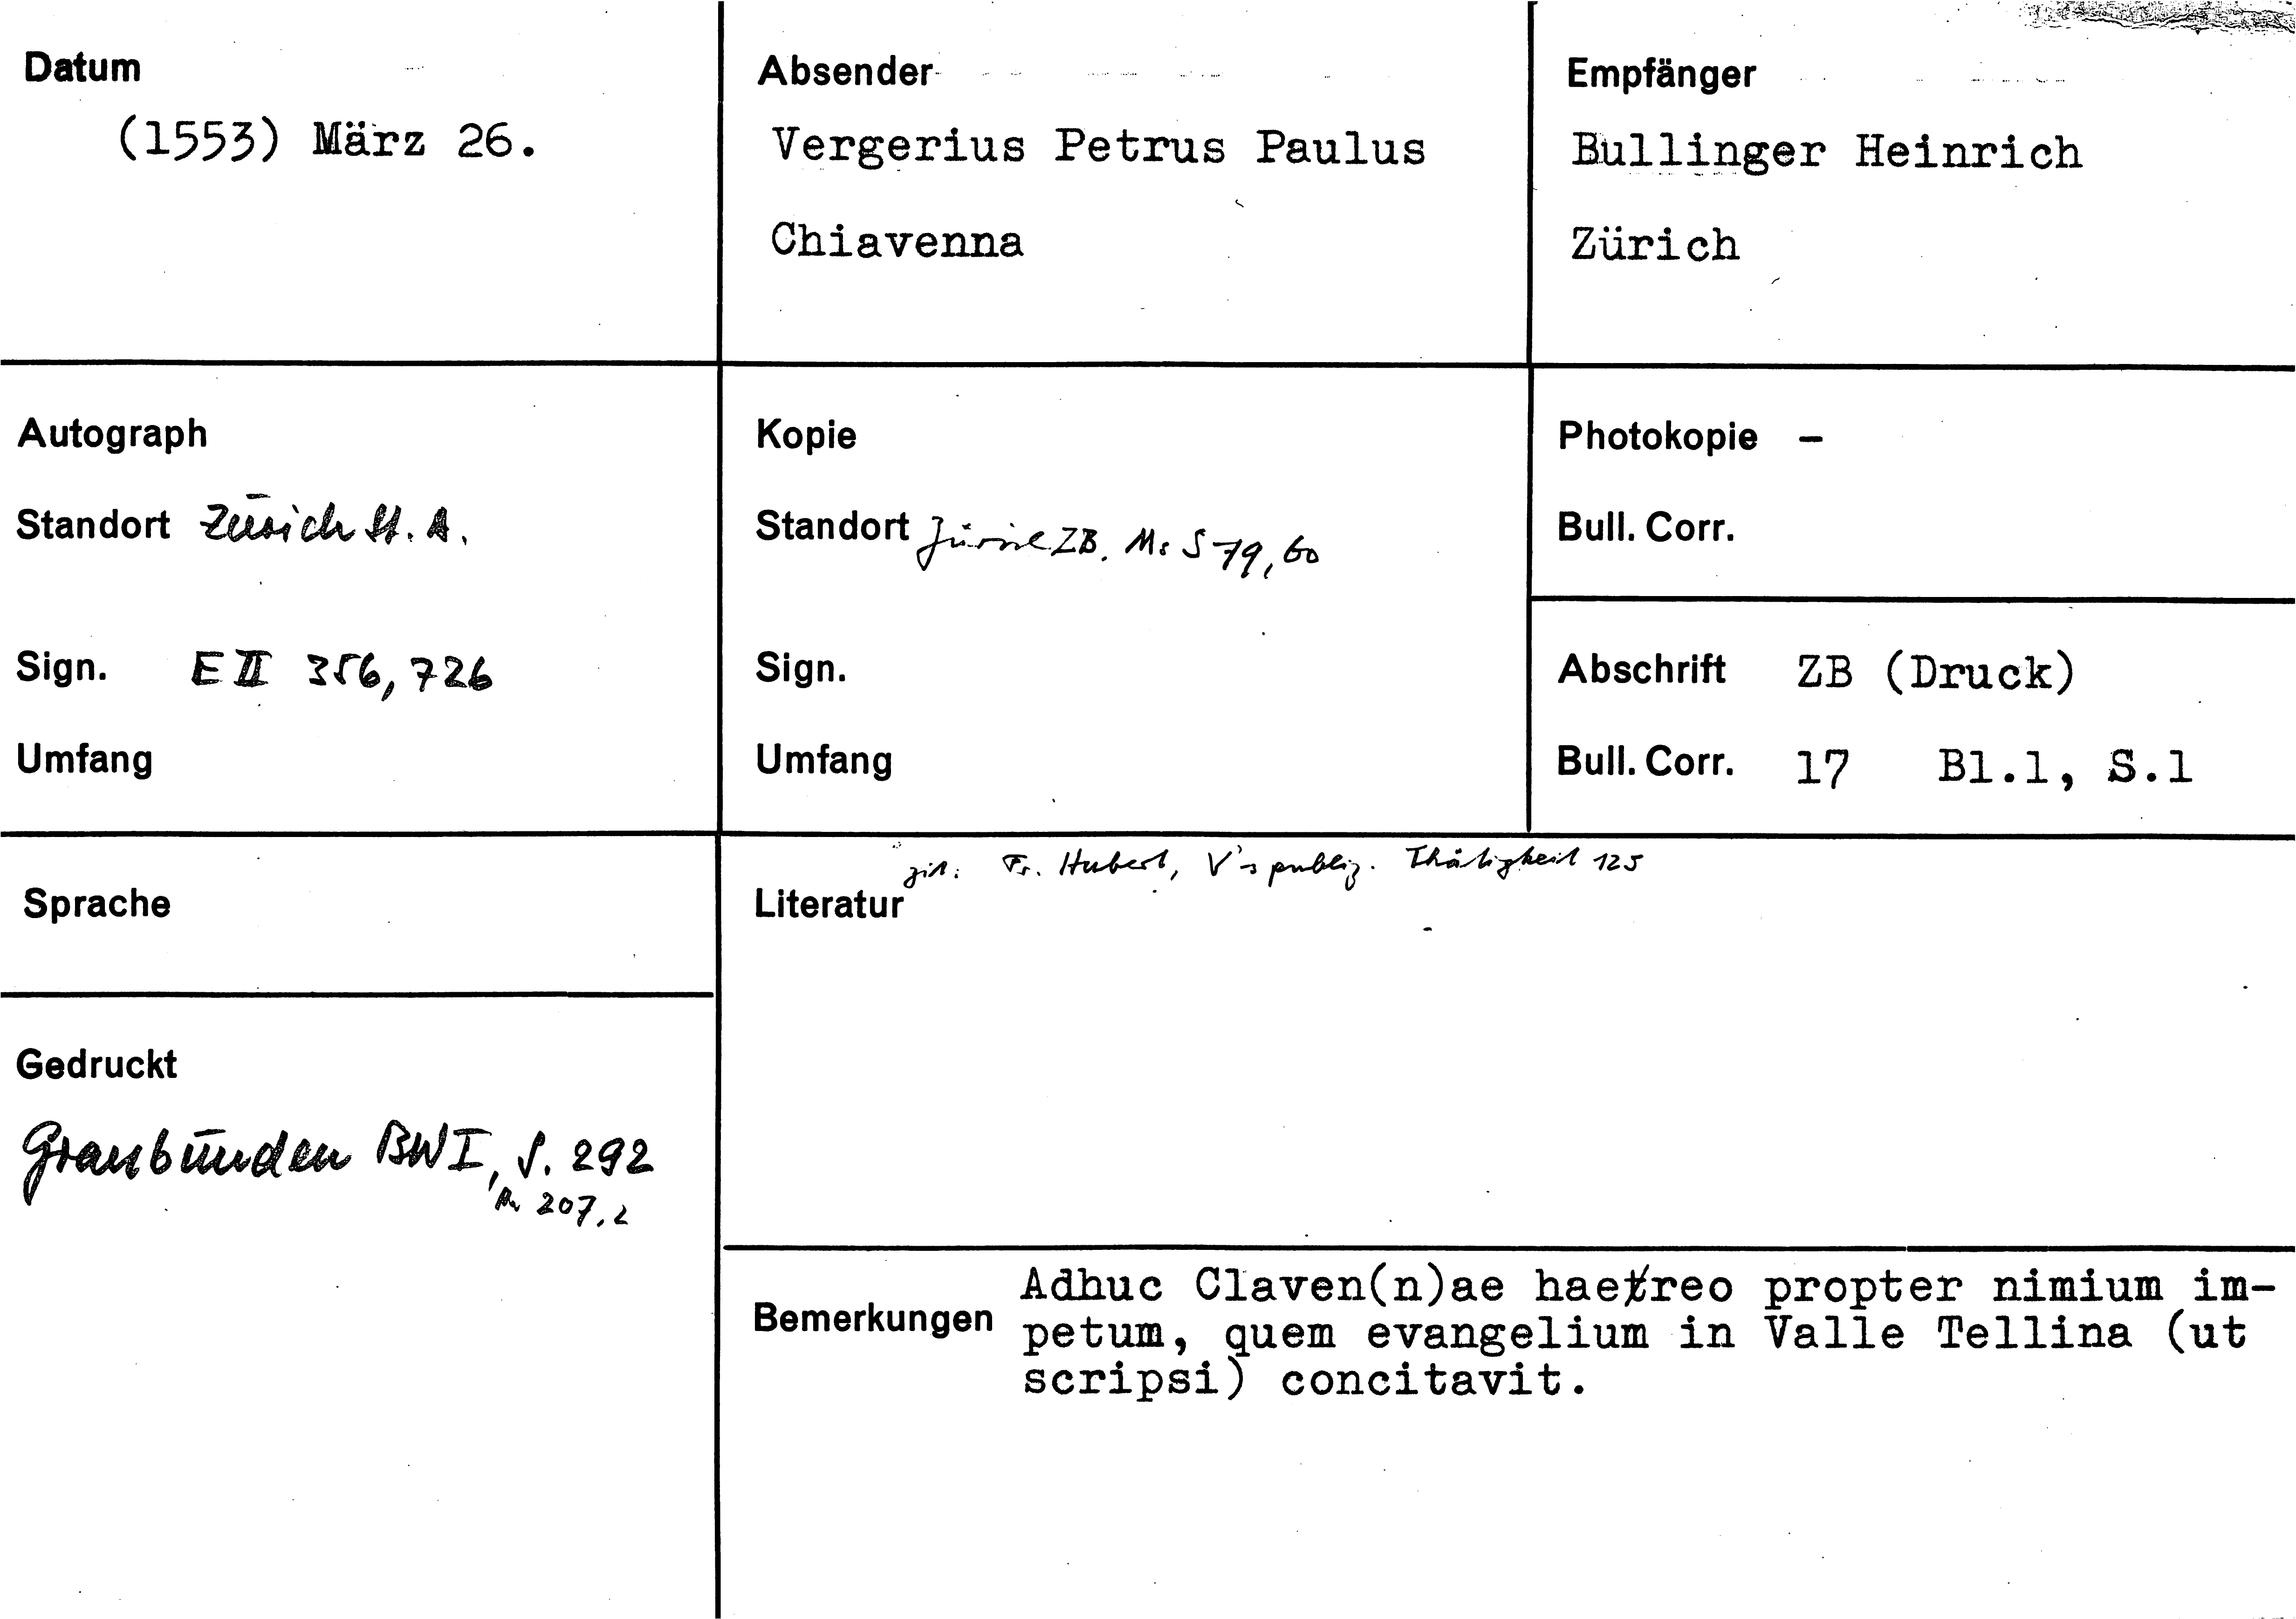 Datum
(1553) März 26.
Absender
Vergerius Petrus Paulus
Chiavenna
Empfänger
Bullinger Heinrich
Zürich
Autograph
Standort Zürich St. A.
Sign. E II 356, 726
Umfang
Kopie
Standort Zürich ZB. Ms S 79, 60
Sign.
Umfang
Photokopie –
Bull. Corr.
Abschrift ZB (Druck)
Bull. Corr. 17 Bl.1, S.1
Sprache
Gedruckt
Graubünden BW I, S. 292
207,2
zit: Fr. Hubert, V's publiz. Thätigkeit 125
Literatur
Bemerkungen
Adhuc Claven(n)ae haereo propter nimium im-
petum, quem evangelium in Valle Tellina (ut
scripsi) concitavit.